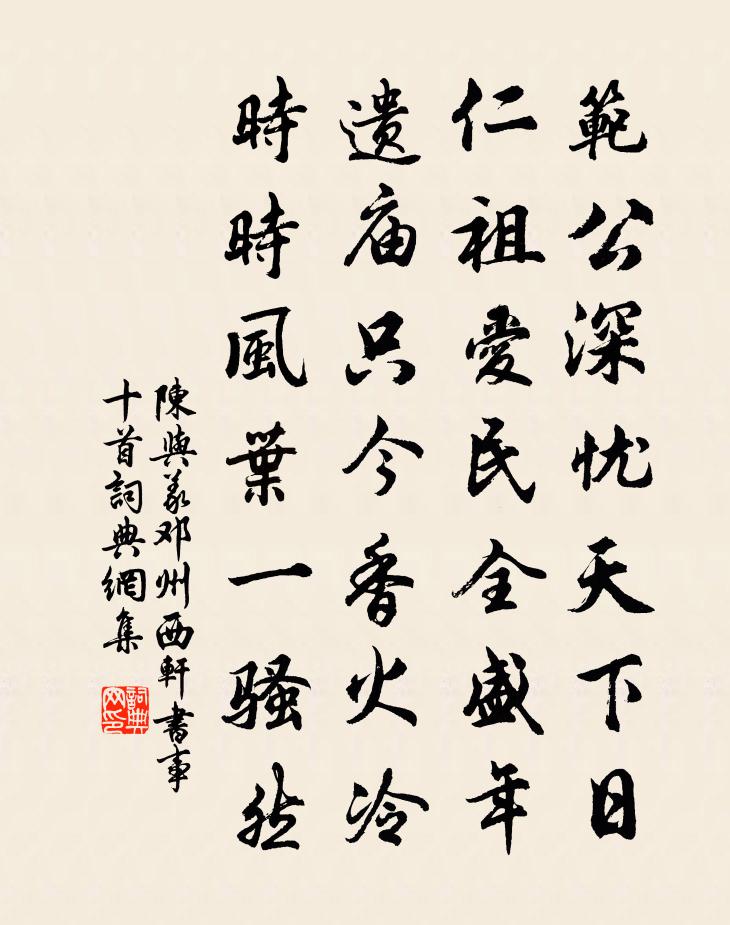 範公深忧天下日
仁祖愛民全盛年
遗庙只今香火冷
時時風葉一骚然
陳與義邓州西軒書事
十首詞典網集
詞典
网印